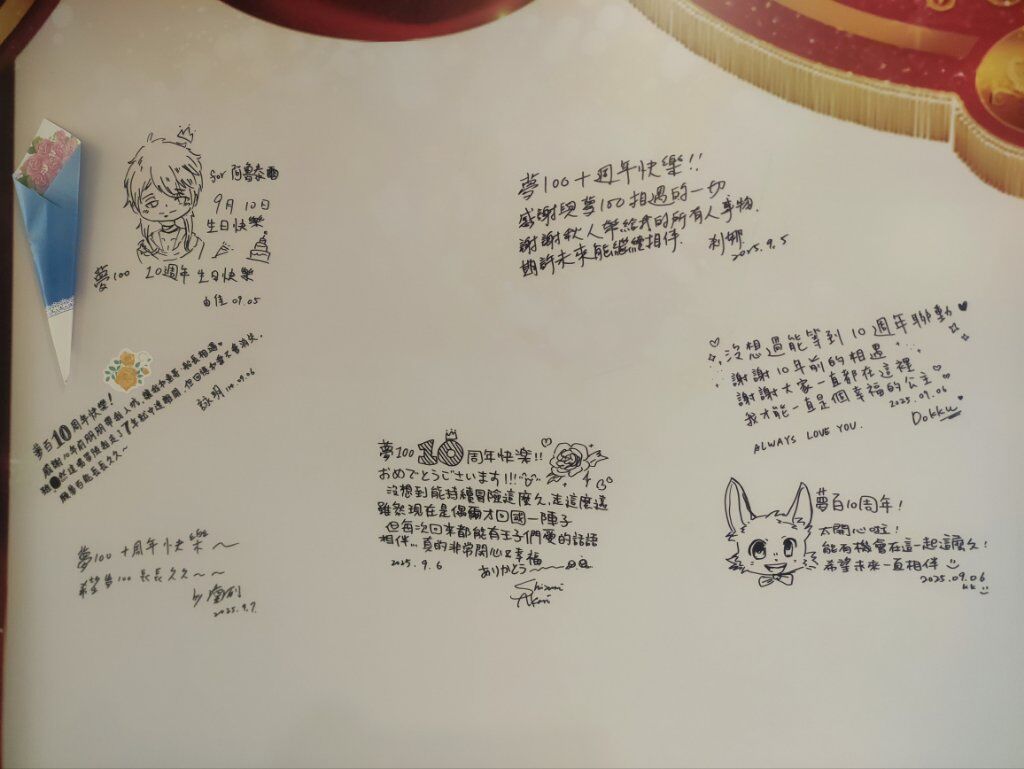 for 阿魯泰爾
9月10日
生日快樂
夢100 10週年 生日快樂
由佳 09.05
夢100十週年快樂!!
感謝與夢100相遇的一切
謝謝秋人 給我的所有人事物.
期許未來能繼續相伴.
2025.9.5
夢百10周年快樂!
感謝10年前朋朋帶我入坑,讓我和 相遇。
雖 然這場冒險我走了7年就中途離開,但回憶和愛不會消失.
願夢百能長長久久~
詠明 114.09.06
沒想過能等到10週年聯動
謝謝10年前的相遇
謝謝大家一直都在這裡
我才能一直是個幸福的公主
2025.09.06
ALWAYS LOVE YOU.
Dokku
夢100 10周年快樂!!
おめでとうございます!!!
沒想到能持續冒險這麼久,走這麼遠
雖然現在是偶爾才回國一陣子
但每次回來都能有王子們愛的話語
相伴...真的非常開心&幸福
2025.9.6 ありがとう~
夢百10周年!
太開心啦!
能有機會在這一起這麼久!
希望未來一直相伴
2025.09.06
kk
夢100十周年快樂~
希望夢100長長久久~~
2025.9.7